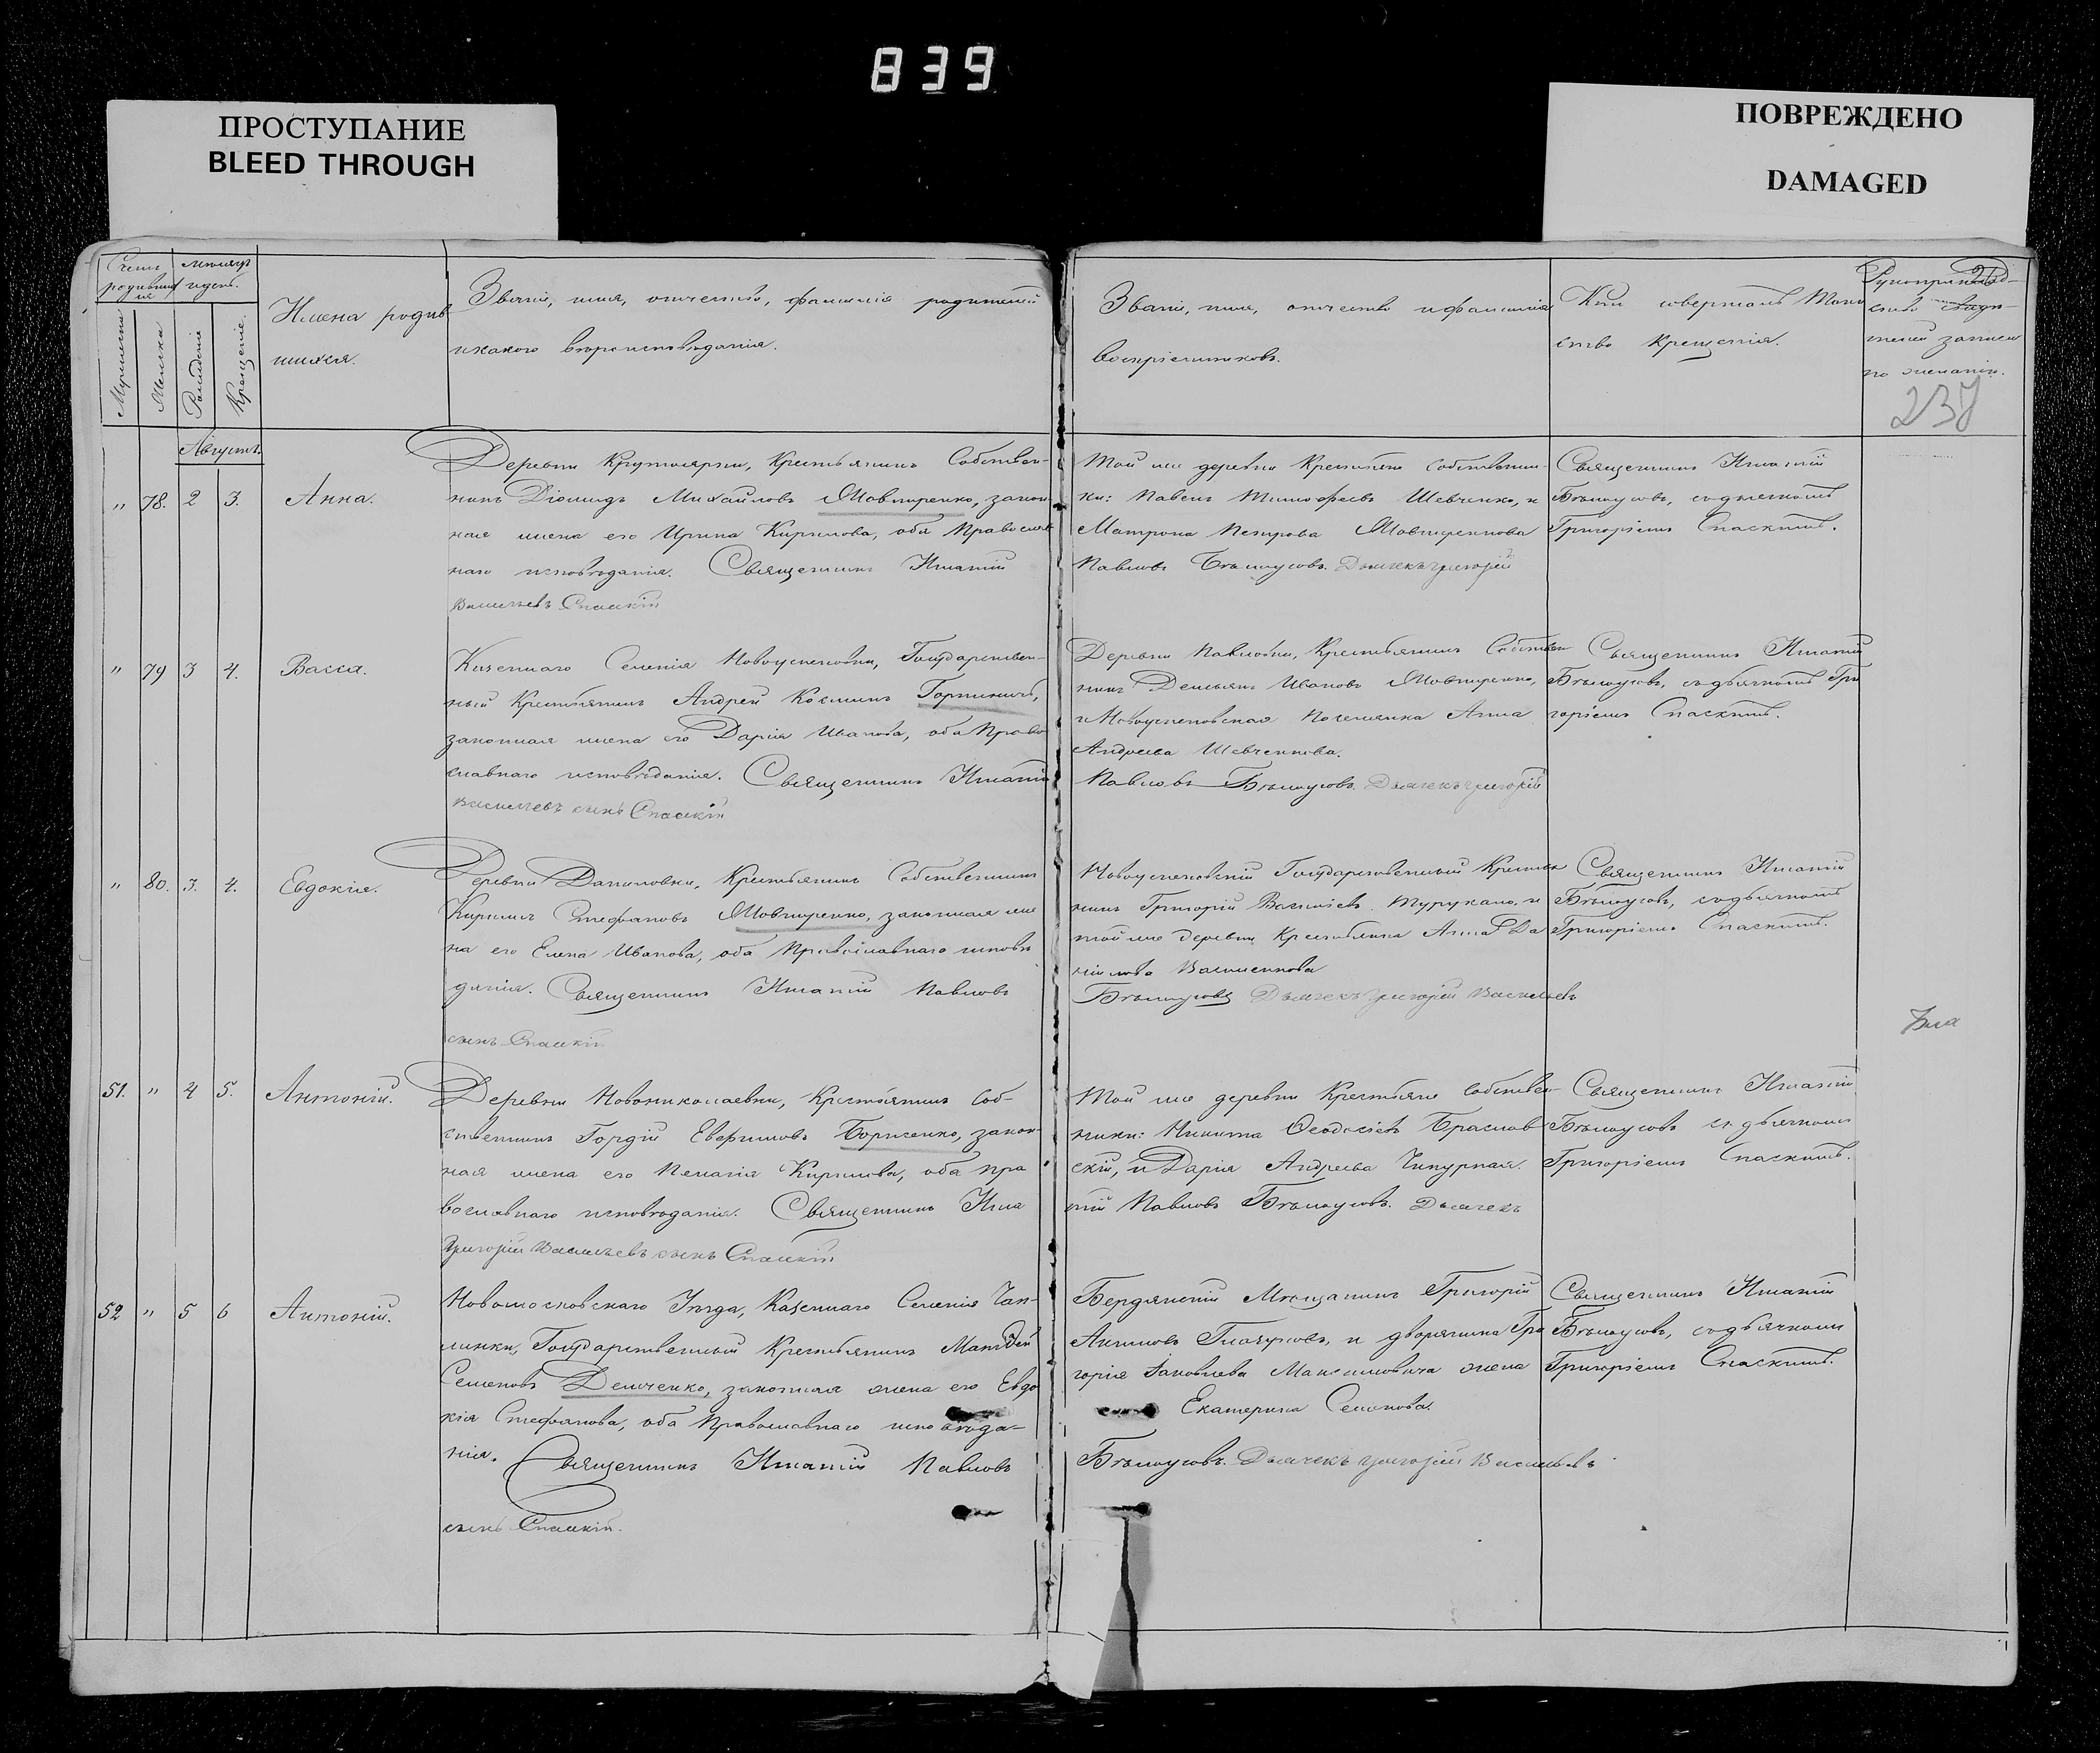 839
ПРОСТУПАНИЕ
BLEED THROUGH
ПОВРЕЖДЕНО
DAMAGED
Счетъ родившихся
Мѣсяцъ и день.
Мужеска
Женска
Рожденіе
Крещеніе.
Имена родив
шихся.
Званіе, имя, отчество, фамилія родителей
и какого вѣроисповѣданія.
Званіе, имя, отчество и фамилія
воспріемниковъ.
Кто совершалъ таин
ство крещенія.
Рукоприклад-
ство свидѣ-
телей записи
по желанію.
237
Августъ.
" 78. 2 3. Анна.
Деревни Крутоярки, Крестьянинъ Собствен-
никъ Діомидъ Михайловъ Мовчиренко, закон
ная жена его Ирина Кирилова, оба Православ
наго исповѣданія. Священникъ Игнатій
Васильевъ Спасскій
Той же деревни Крестьяне собственни-
ки: Павелъ Тимофеевъ Шевченко, и
Матрона Петрова
Павловъ Бѣлоусовъ. Дьячекъ Григорій
Священникъ Игнатій
Бѣлоусовъ, съ дьячкомъ
Григоріемъ Спаскимъ.
" 79 3 4. Васса.
Казеннаго Селенія Новоуспеновки, Государствен-
ный Крестьянинъ Андрей Косминъ
законная жена его Дарія Иванова, оба Право
славнаго исповѣданія. Священникъ Игнатій
Васильевъ сынъ Спасскій
Деревни Павловки, Крестьянинъ Собствен
никъ Демьянъ Ивановъ
и Новоуспеновская Поселянка Анна
Андреева Шевченкова.
Павловъ Бѣлоусовъ. Дьячекъ Григорій
Священникъ Игнатій
Бѣлоусовъ, съ дьячкомъ Гри
горіемъ Спаскимъ.
" 80. 3. 4. Евдокія.
Деревни Даниловки, Крестьянинъ Собственникъ
Кирилъ Стефановъ законная же
на его Елена Иванова, оба Православнаго исповѣ
данія. Священникъ Игнатій Павловъ
сынъ Спасскій
Новоуспеновскій Государственный Крестья
нинъ Григорій Васильевъ и
той же деревни Крестьянка Анна Да
нилова Василенкова
Бѣлоусовъ Дьячекъ Григорій Васильевъ
Священникъ Игнатій
Бѣлоусовъ, съ дьячкомъ
Григоріемъ Спаскимъ.
51. " 4 5. Антоній.
Деревни Новониколаевки, Крестьянинъ Соб-
ственникъ Гордій Евфимовъ Борисенко, закон
ная жена его Пелагія Кирилова, оба пра
вославнаго исповѣданія. Священникъ Игна
Григорій Васильевъ сынъ Спасскій
Той же деревни Крестьяне Собствен-
ники: Никита Ѳеодосіевъ Браслав
скій, и Дарія Андреева Чепурная.
тій Павловъ Бѣлоусовъ. Дьячекъ
Священникъ Игнатій
Бѣлоусовъ съ дьячкомъ
Григоріемъ Спаскимъ.
52 " 5 6 Антоній.
Новомосковскаго Уѣзда, Казеннаго Селенія Чап-
линки, Государственный Крестьянинъ Матвѣй
Семеновъ Демченко, законная жена его Евдо
кія Стефанова, оба Православнаго исповѣда-
нія. Священникъ Игнатій Павловъ
сынъ Спасскій.
Бердянскій Мѣщанинъ Григорій
Акимовъ и дворянина Гри
горія Яковлева Максимовича жена
Екатерина Семенова.
Бѣлоусовъ. Дьячекъ Григорій Васильевъ
Священникъ Игнатій
Бѣлоусовъ, съ дьячкомъ
Григоріемъ Спаскимъ.